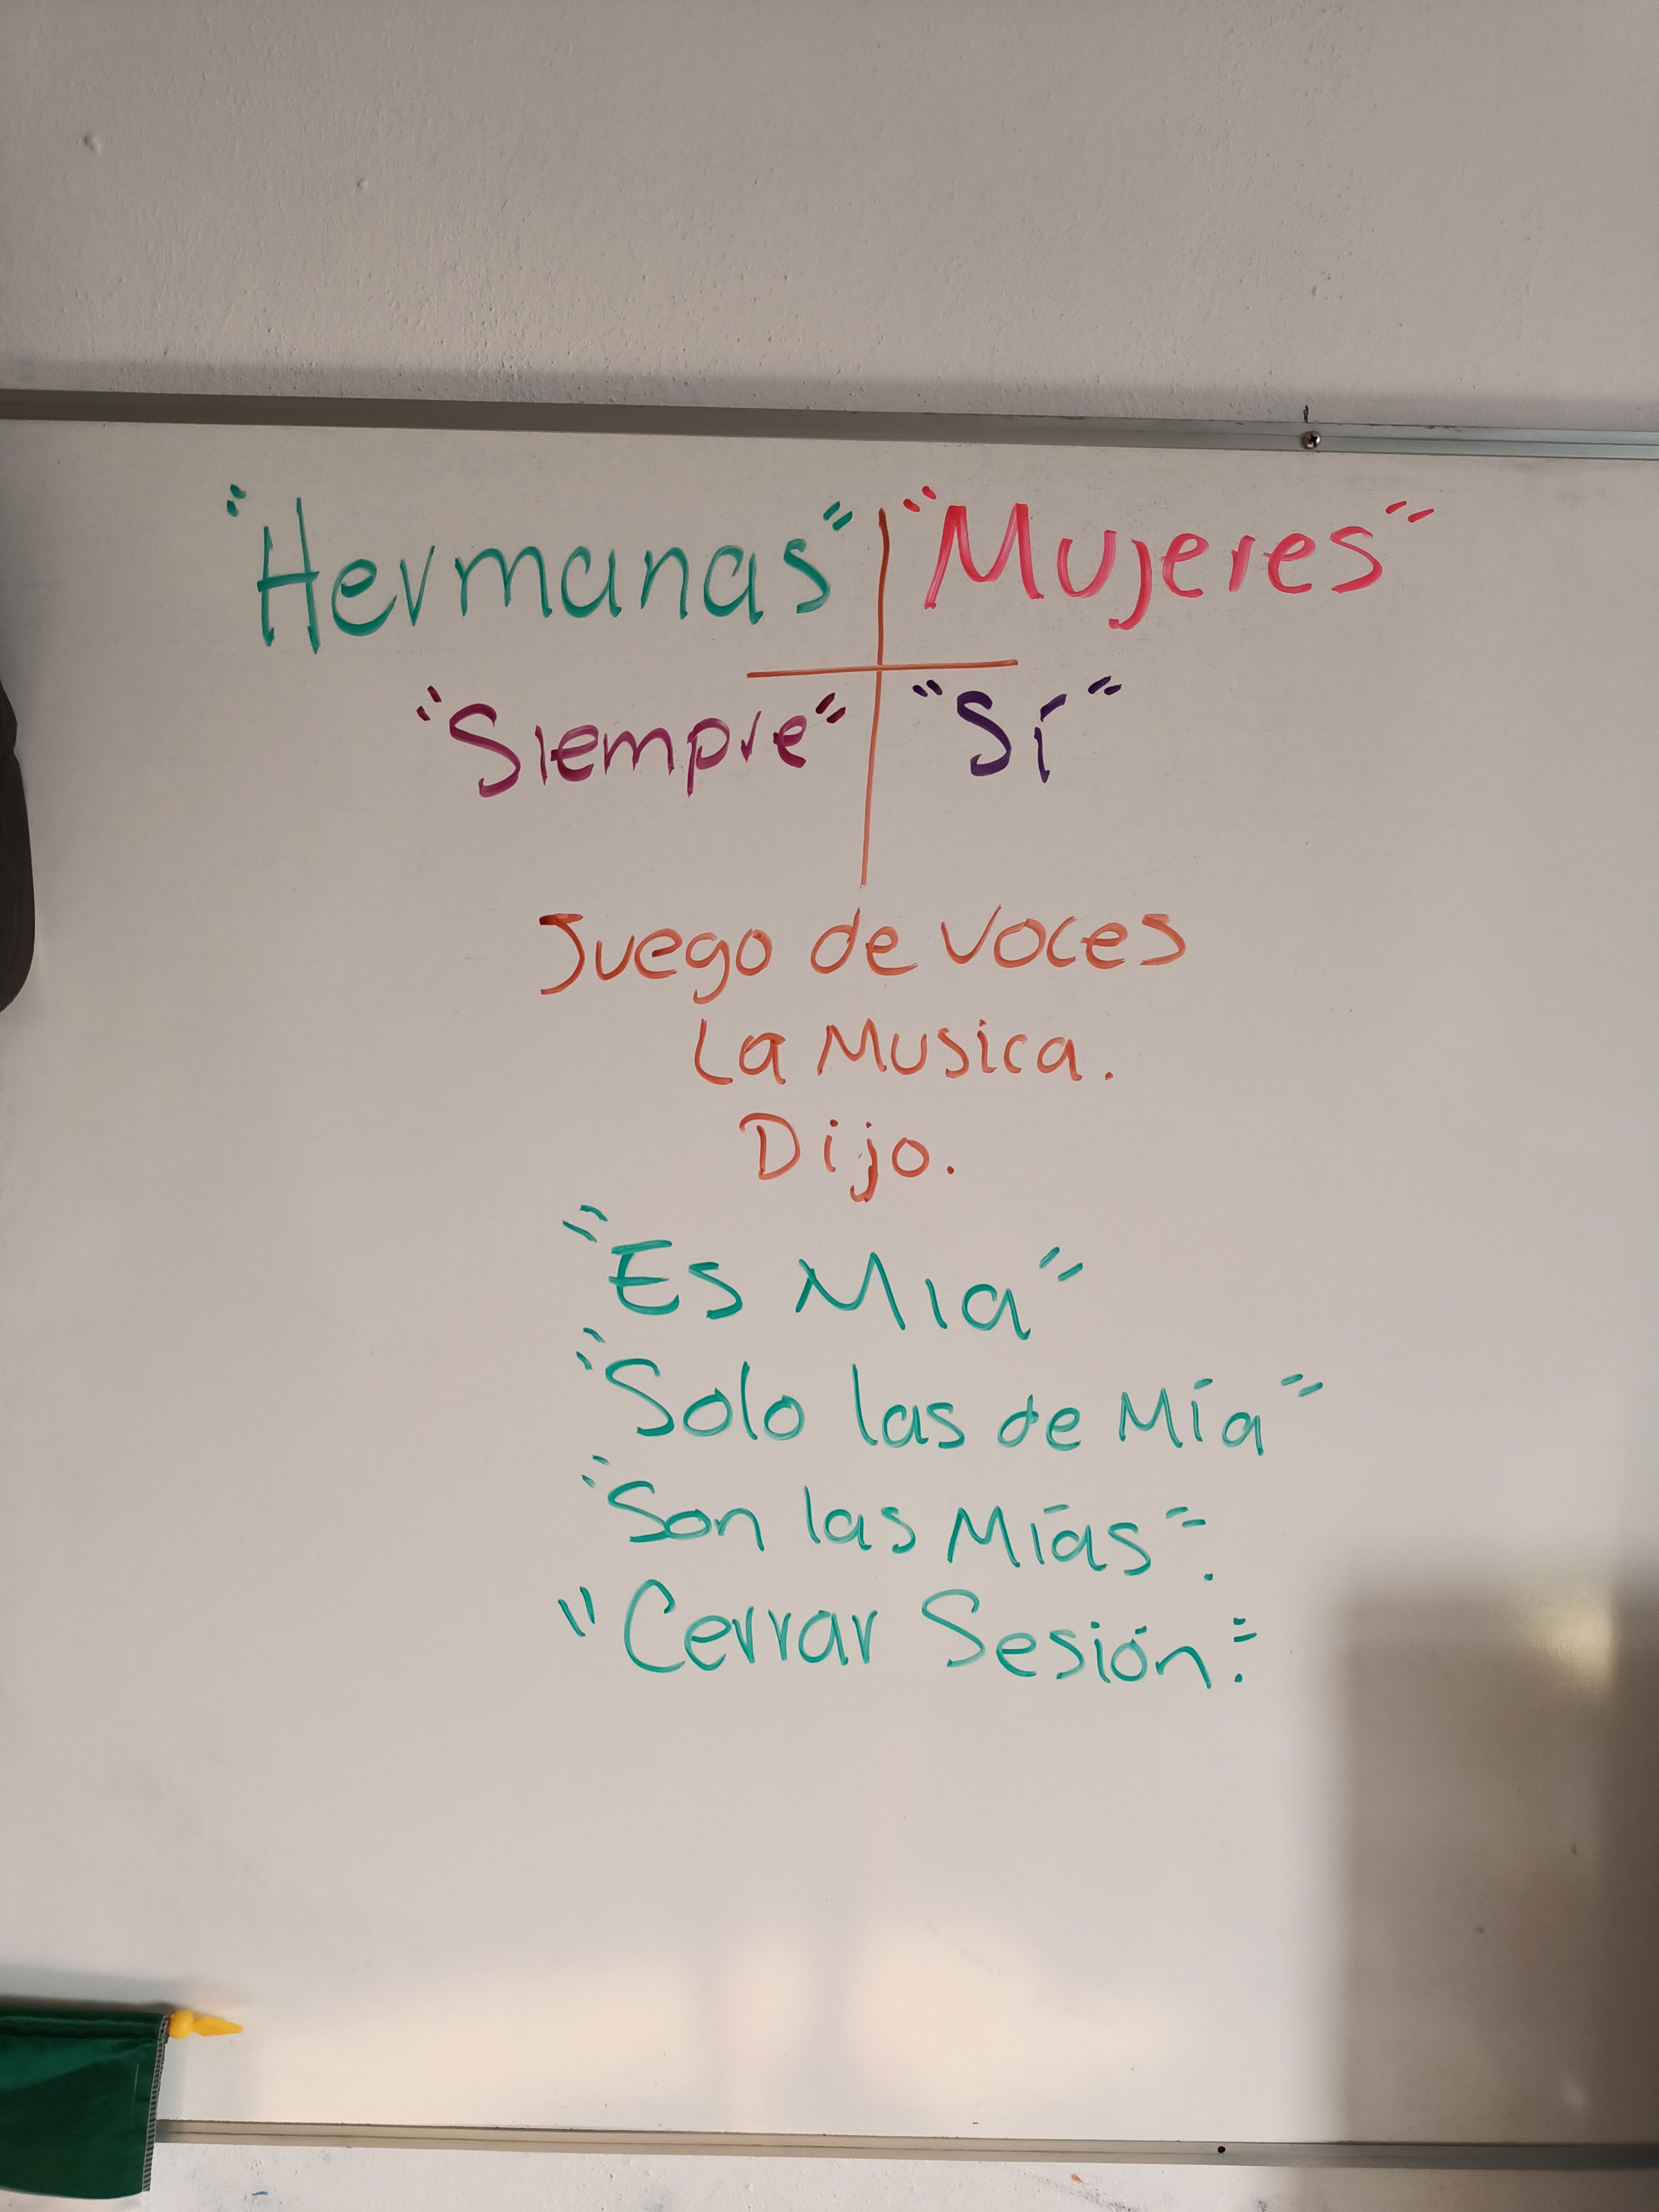 "Hermanas" "Mujeres"
"Siempre" "Sí"
Juego de voces
La Musica.
Dijo.
"Es Mia"
"Solo las de Mía"
"Son las Mías".
"Cerrar Sesión".